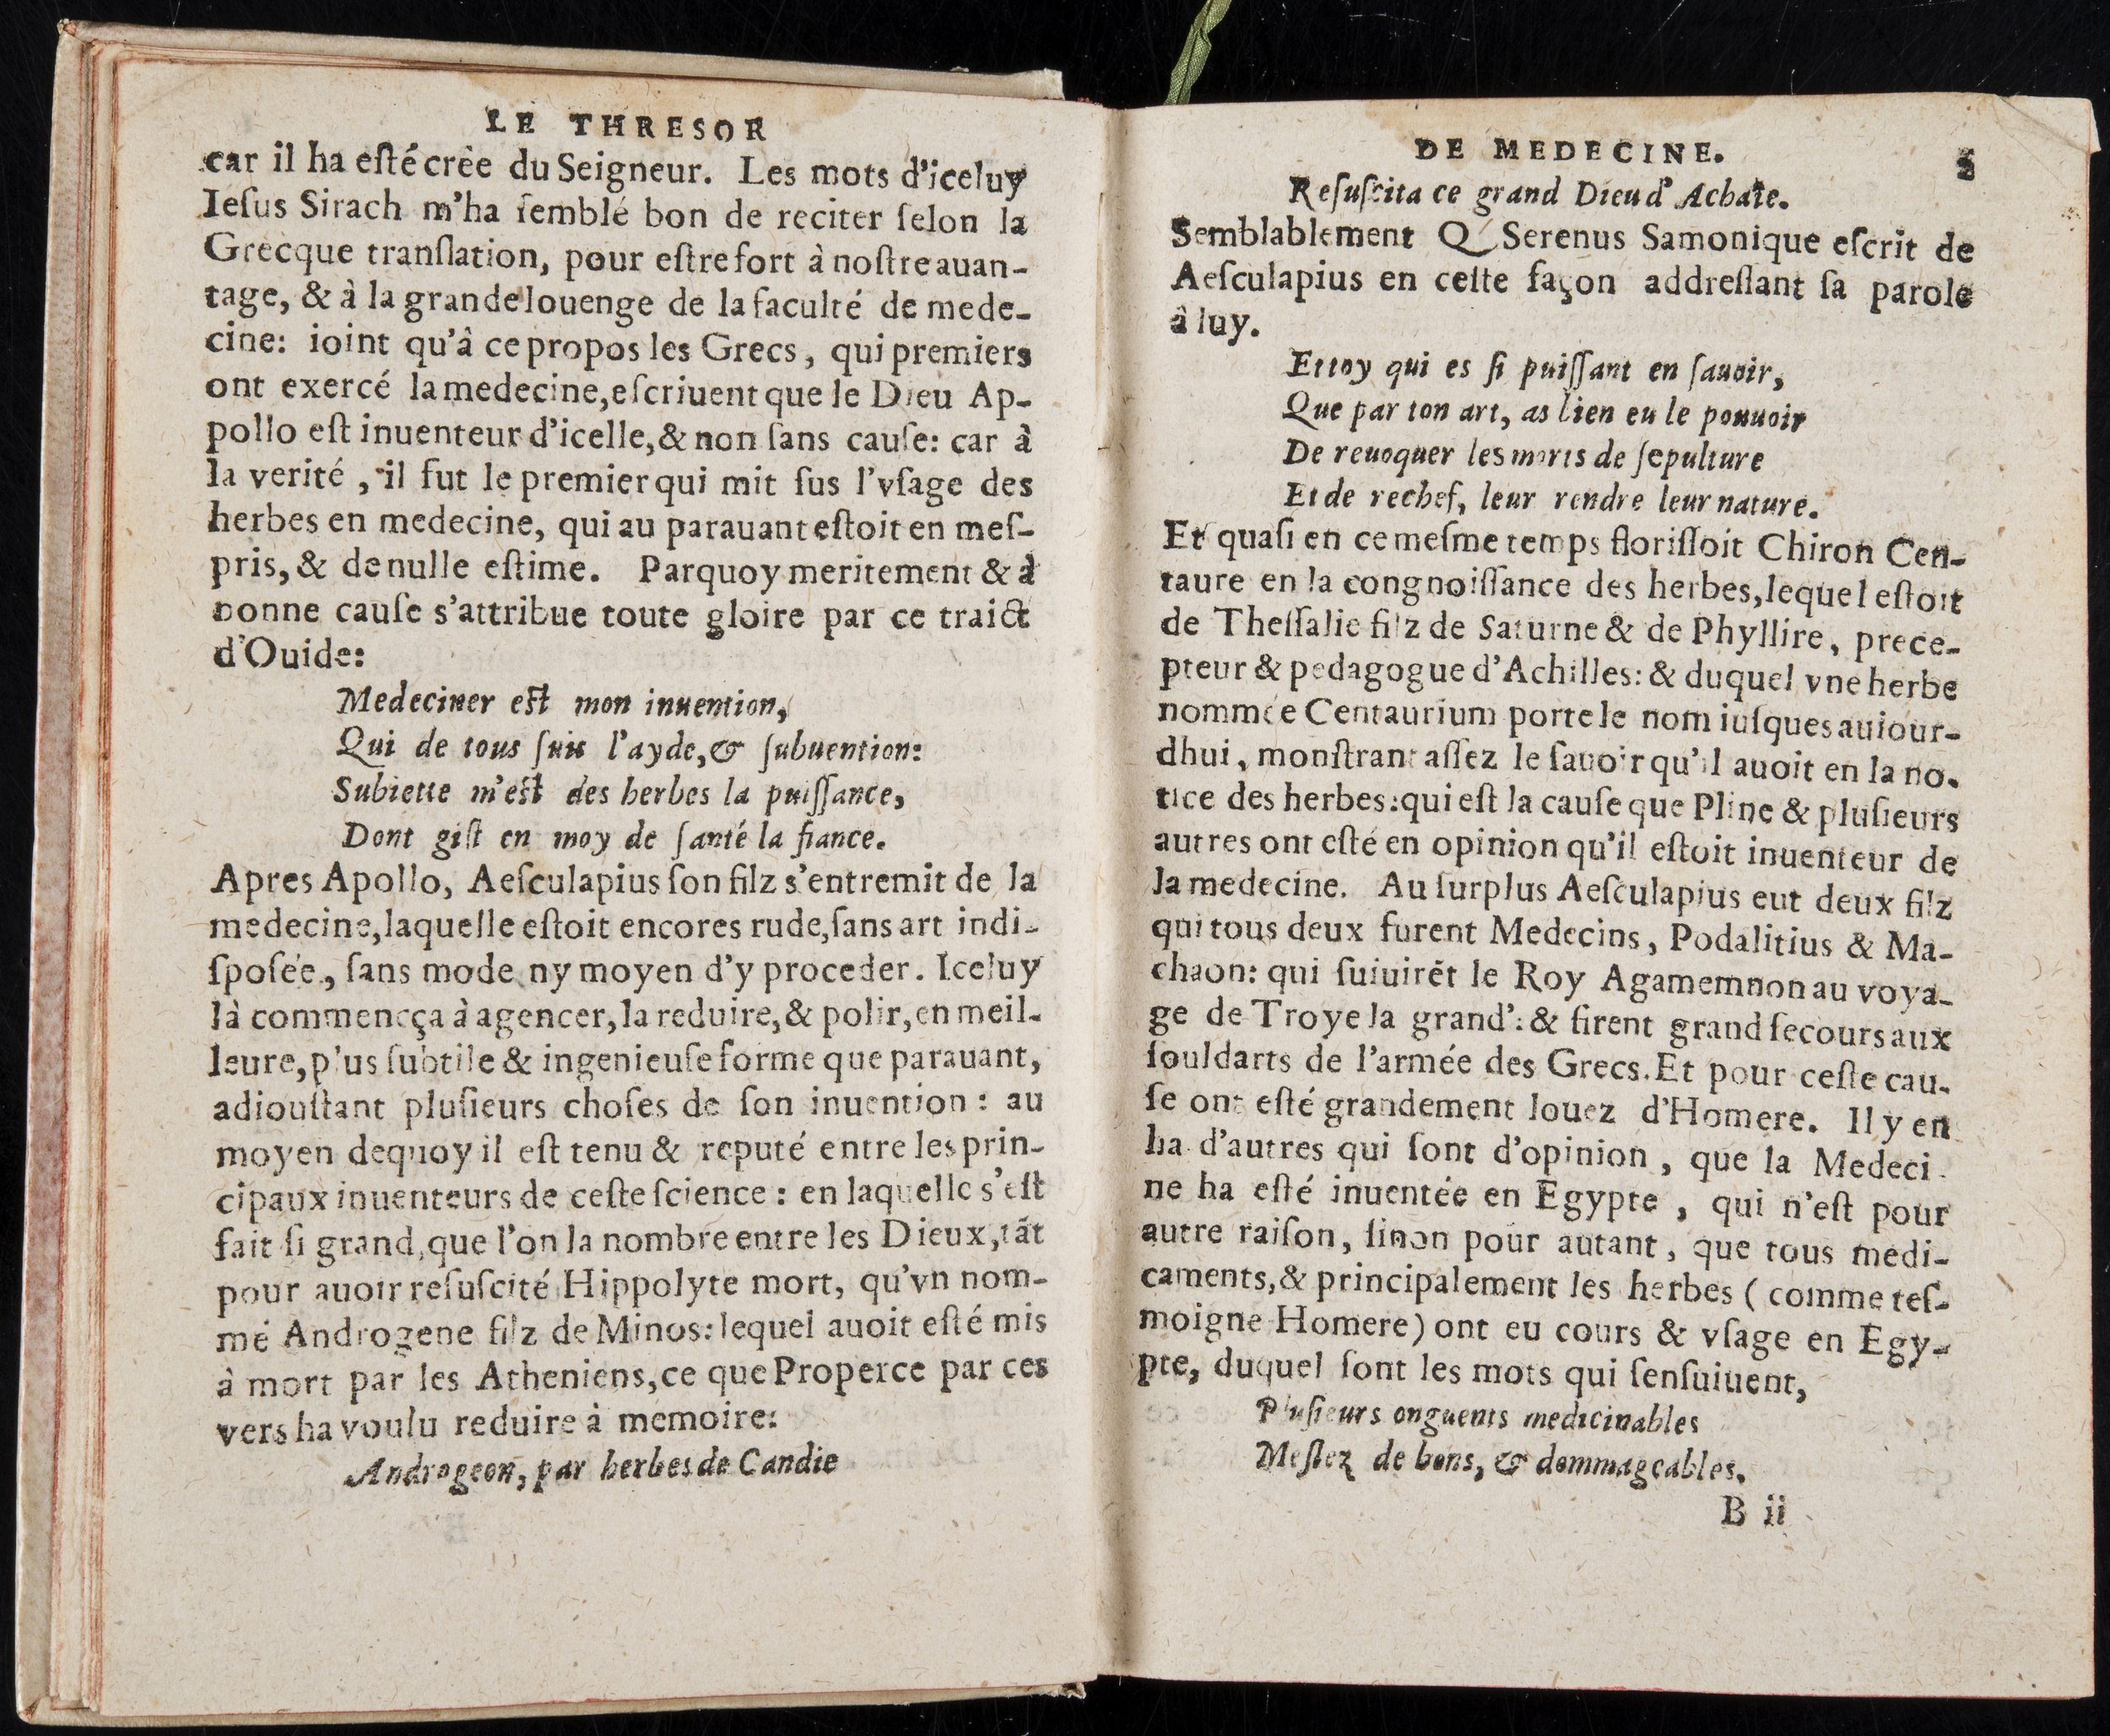 LE THRESOR
car il ha eſté crèe du Seigneur. Les mots d'iceluy
Ieſus Sirach m'ha ſemblé bon de reciter ſelon la
Grecque tranſlation, pour eſtre fort à noſtre auan-
tage, & à la grande louenge de la faculté de mede-
cine: ioint qu'à ce propos les Grecs, qui premiers
ont exercé la medecine, eſcriuent que le Dieu Ap-
pollo eſt inuenteur d'icelle, & non ſans cauſe: car à
la verité, il fut le premier qui mit ſus l'vſage des
herbes en medecine, qui au parauant eſtoit en meſ-
pris, & de nulle eſtime. Parquoy meritement & à
bonne cauſe s'attribue toute gloire par ce traict
d'Ouide:
Medeciner eſt mon inuention,
Qui de tous ſuis l'ayde, & ſubuention:
Subiette m'eſt des herbes la puiſſance,
Dont giſt en moy de ſanté la fiance.
Apres Apollo, Aeſculapius ſon filz s'entremit de la
medecine, laquelle eſtoit encores rude, ſans art indi-
ſpoſée, ſans mode ny moyen d'y proceder. Iceluy
là commencça à agencer, la reduire, & polir, en meil-
leure, plus ſubtile & ingenieuſe forme que parauant,
adiouſtant pluſieurs choſes de ſon inuention: au
moyen dequoy il eſt tenu & reputé entre les prin-
cipaux inuenteurs de ceſte ſcience: en laquelle s'eſt
fait ſi grand, que l'on la nombre entre les Dieux, tāt
pour auoir reſuſcité Hippolyte mort, qu'vn nom-
mé Androgene filz de Minos: lequel auoit eſté mis
à mort par les Atheniens, ce que Properce par ces
vers ha voulu reduire à memoire:
Androgeon, par herbes de Candie
DE MEDECINE.
Reſuſcita ce grand Dieu d'Achaïe.
Semblablement Q Serenus Samonique eſcrit de
Aeſculapius en ceſte façon addreſſant ſa parole
à luy.
Et toy qui es ſi puiſſant en ſauoir,
Que par ton art, as bien eu le pouuoir
De reuoquer les morts de ſepulture
Et de rechef, leur rendre leur nature.
Et quaſi en ce meſme temps floriſſoit Chiron Cen-
taure en la congnoiſſance des herbes, lequel eſtoit
de Theſſalie filz de Saturne & de Phyllire, prece-
pteur & pedagogue d'Achilles: & duquel vne herbe
nommée Centaurium porte le nom iuſques auiour-
dhui, monſtrant aſſez le ſauoir qu'il auoit en la no-
tice des herbes: qui eſt la cauſe que Pline & pluſieurs
autres ont eſté en opinion qu'il eſtoit inuenteur de
la medecine. Au ſurplus Aeſculapius eut deux filz
qui tous deux furent Medecins, Podalitius & Ma-
chaon: qui ſuiuirēt le Roy Agamemnon au voya-
ge de Troye la grand': & firent grand ſecours aux
ſouldarts de l'armée des Grecs. Et pour ceſte cau-
ſe ont eſté grandement louez d'Homere. Il y en
ha d'autres qui ſont d'opinion, que la Medeci-
ne ha eſté inuentée en Egypte, qui n'eſt pour
autre raiſon, ſinon pour autant, que tous medi-
caments, & principalement les herbes (comme teſ-
moigne Homere) ont eu cours & vſage en Egy-
pte, duquel ſont les mots qui ſenſuiuent,
Pluſieurs onguents medicinables
Meſlez de bons, & dommageables.
B ii